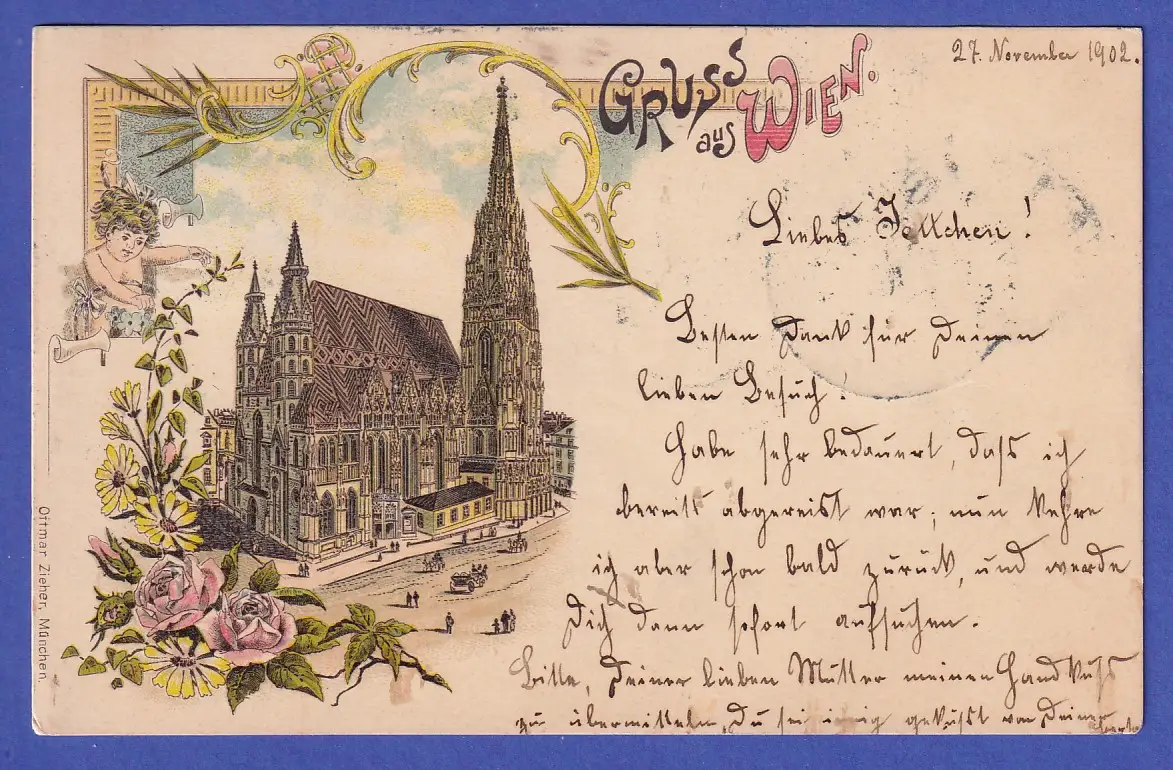 GRUSS
aus WIEN.
27. November 1902.
Liebes !
Besten Dank für Deinen
lieben Besuch!
Habe sehr bedauert, dass ich
bereits abgereist war; nun kehre
ich aber schon bald zurück, und werde
Dich dann sofort aufsuchen.
Bitte, Deiner lieben Mutter meinen Handkuss
zu übermitteln, Du sei innig geküsst von Deiner
Ottmar Zieher, München.